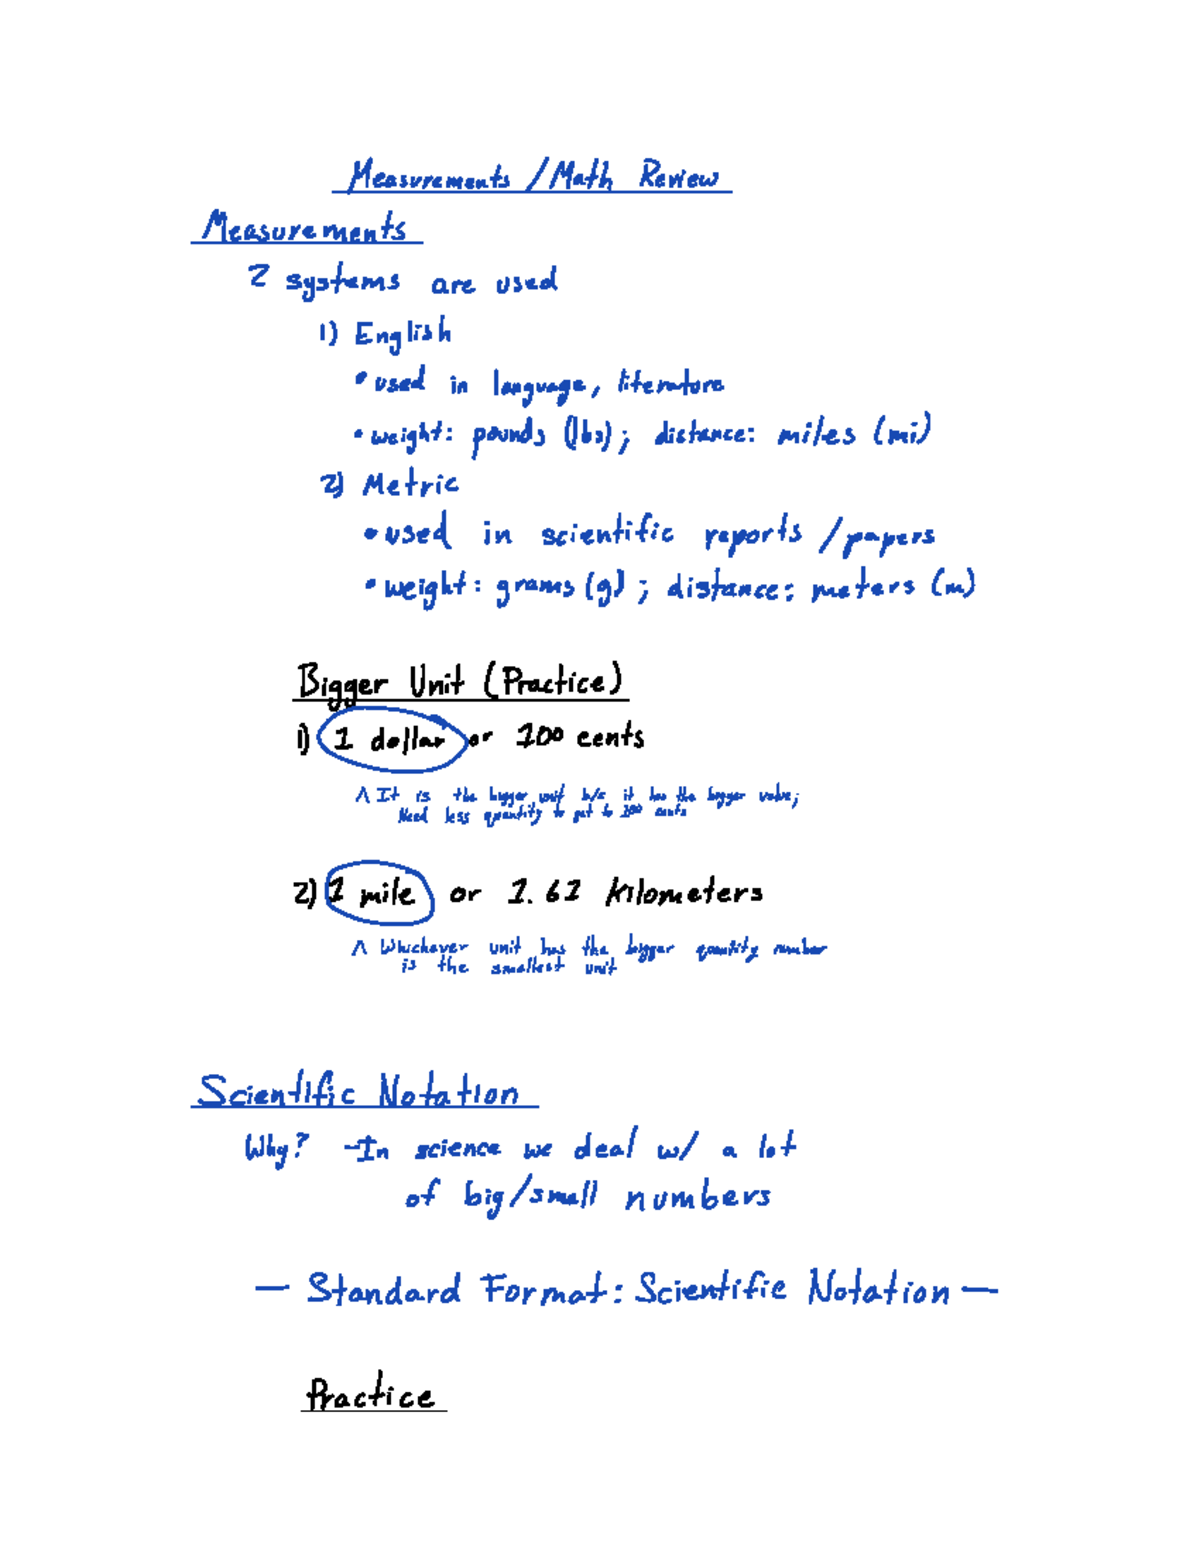 Measurements / Math Review
Measurements
2 systems are used
1) English
• used in language, literature
• weight: pounds (lbs); distance: miles (mi)
2) Metric
• used in scientific reports / papers
• weight: grams (g); distance: meters (m)
Bigger Unit (Practice)
1) 1 dollar or 100 cents
^ It is the bigger unit b/c it has the bigger value;
Need less quantity to get to 100 cents
2) 1 mile or 1.61 Kilometers
^ Whichever unit has the bigger quantity number
is the smallest unit
Scientific Notation
Why? - In science we deal w/ a lot
of big/small numbers
— Standard Format: Scientific Notation —
Practice